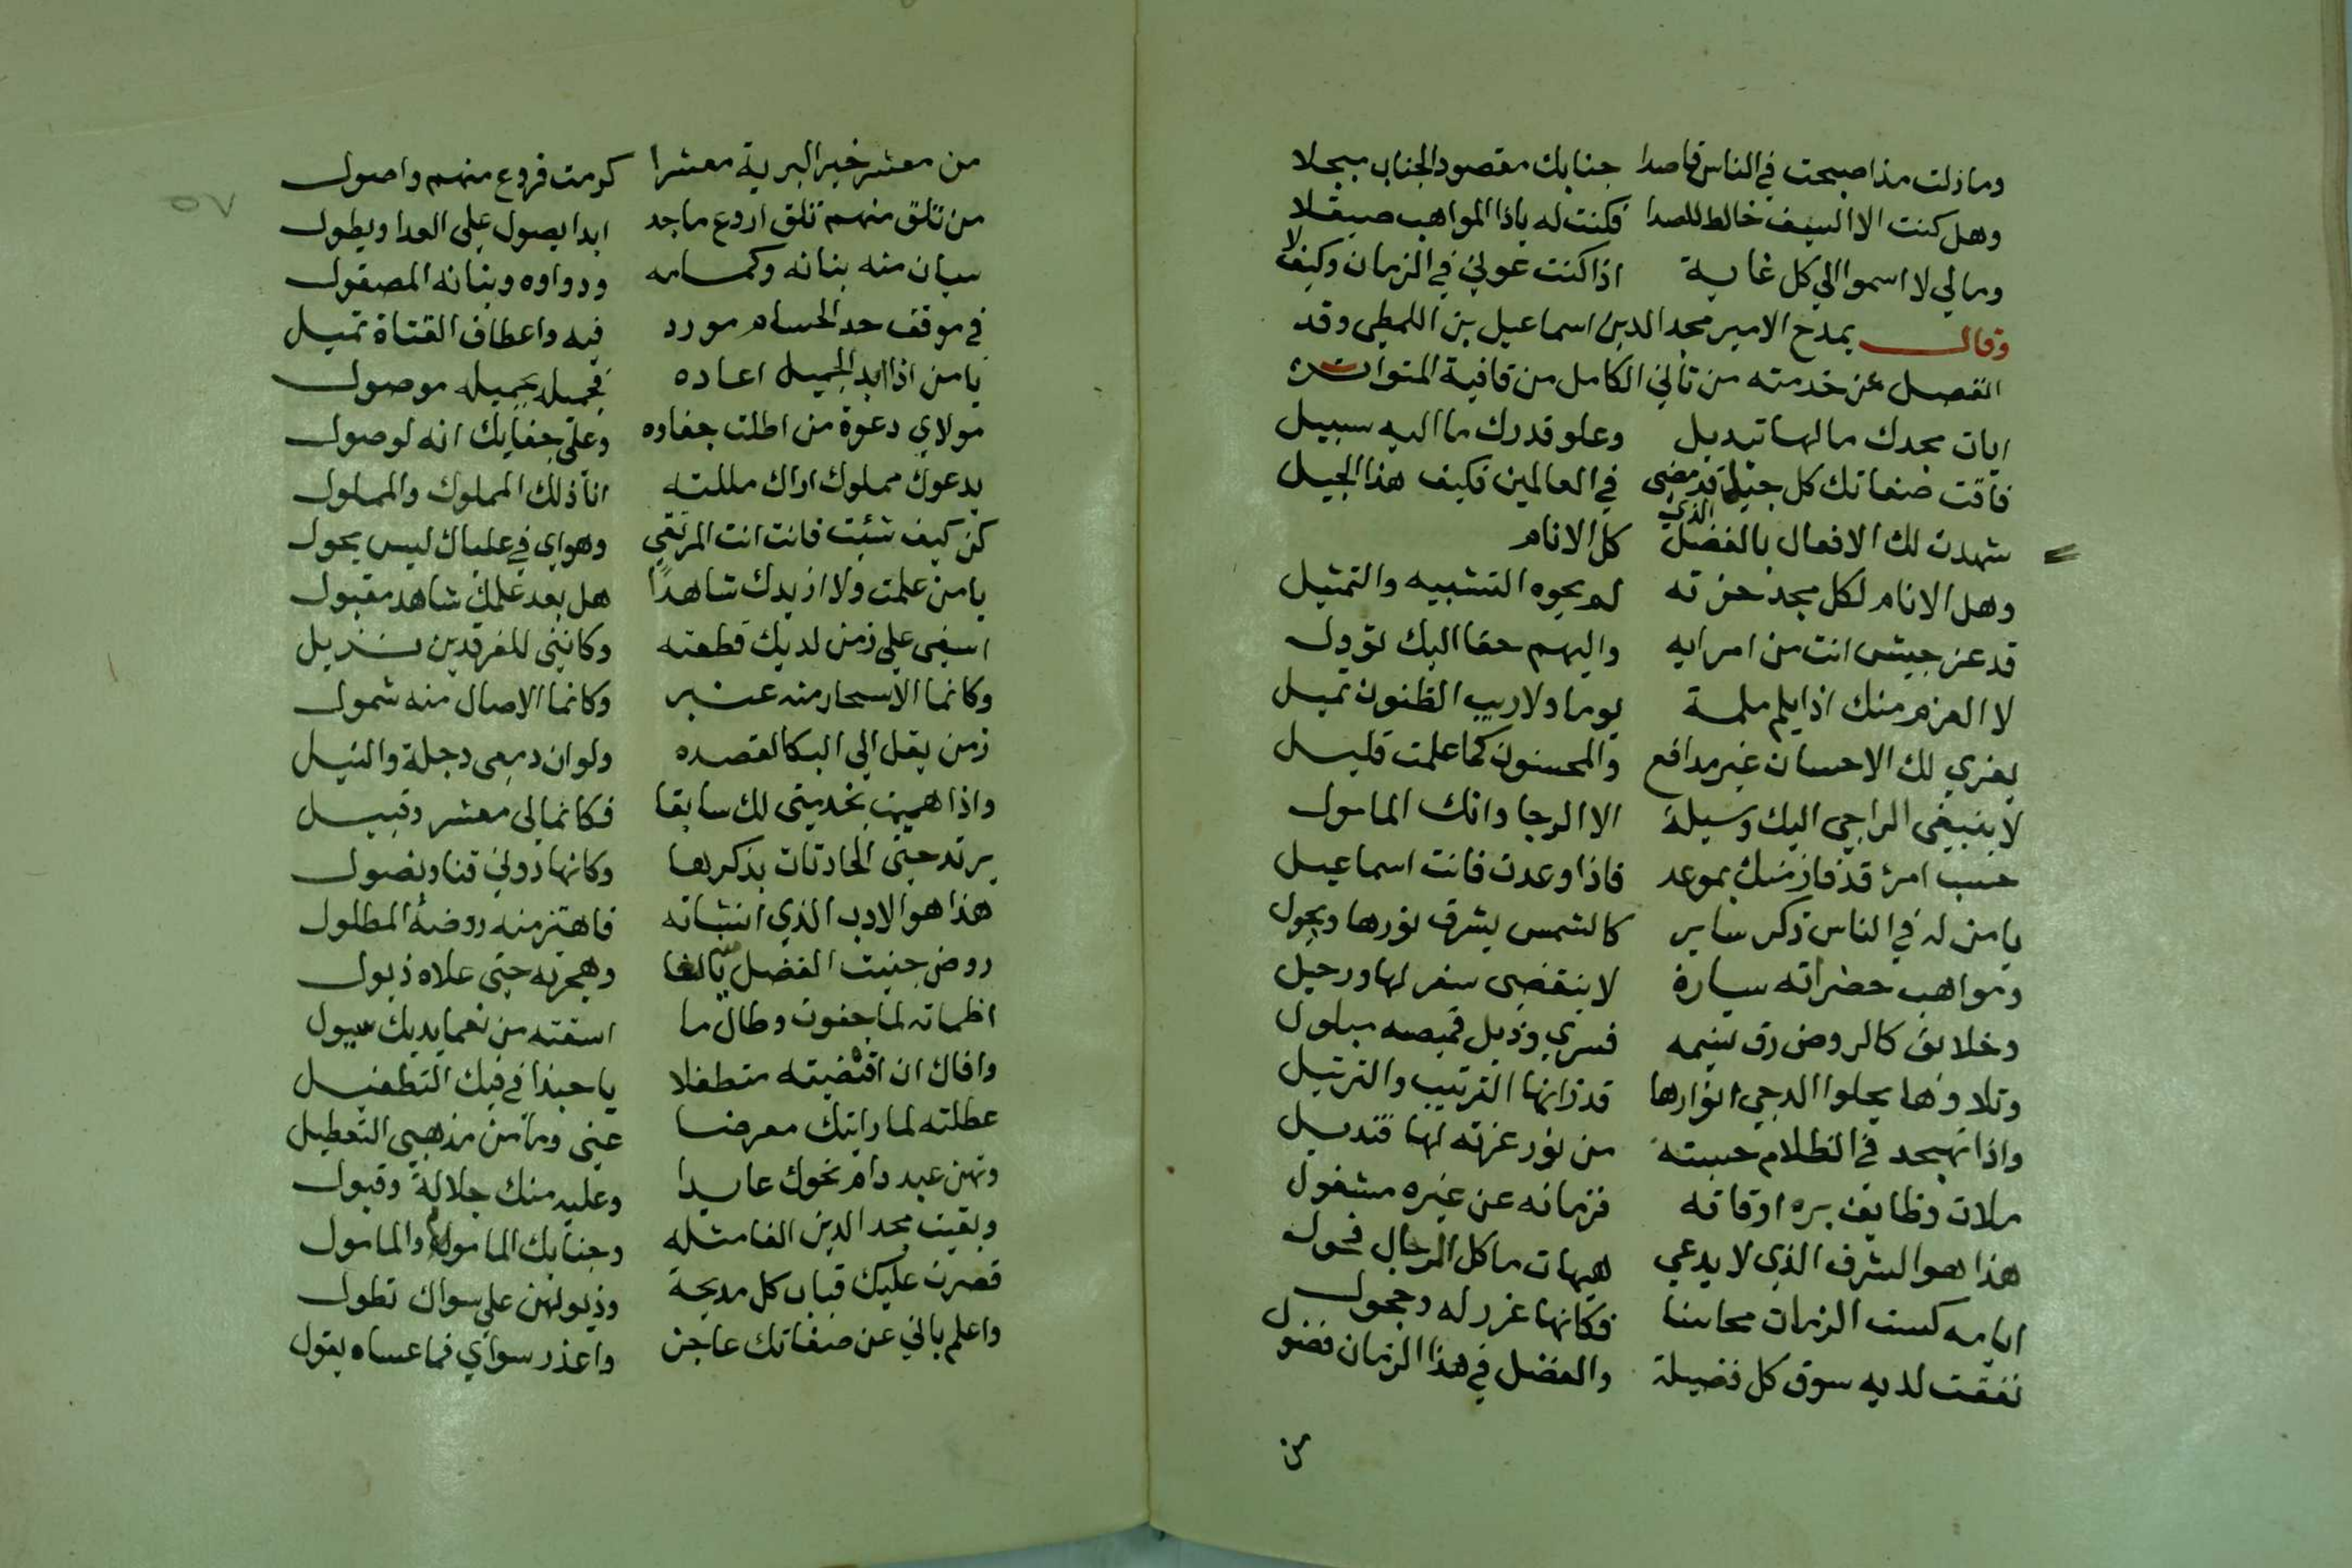 ومازلت مذ اصبحت في الناس قاصدا جنابك مقصود الجناب مبجلا
وهل كنت الا السيف خالط للصدا فكنت له ياذا المواهب صيقلا
ومالي لا اسموا الي كل غاية اذا كنت عوني في الزمان وكيف لا
وقال يمدح الامير مجد الدين اسماعيل بن اللمطي وقد
انفصل عن خدمته من ثاني الكامل من قافية المتواتر
ايات مجدك مالها تبديل وعلو قدرك ما اليه سبيل
فاقت صفاتك كل جيل قد مضى في العالمين فكيف هذا الجيل
شهدت لك الافعال بالفضل الذي كل الانام
وهل الانام لكل مجد حزته لم يحوه التشبيه والتمثيل
قد عز جيش انت من امرايه واليهم حقا اليك تؤول
لا العزم منك اذا يلم ملمة يوما ولا ريب الظنون تميل
يعزي لك الاحسان غير مدافع والمحسنون كما علمت قليل
لا ينبغي الراجي اليك وسيلة الا الرجا وانك المامول
حسب امرئ قد فاز منك بموعد فاذا وعدت فانت اسماعيل
يامن له في الناس ذكر ساير كالشمس يشرق نورها ويجول
ومواهب حضراته سيارة لا ينقضى سفر لها ورحيل
وخلايق كالروض رق نسيمه فسري وذيل قميصه مبلول
وتلاوة ها يجلوا الدجي انوارها قد زانها الترتيب والترتيل
واذا تهجد في الظلام حسبته من نور غرته لها قنديل
ملات وظايف بره اوقاته فزمانه عن غيره مشغول
هذا هو الشرف الذي لا يدعي هيهات ما كل الرجال فحول
ايامه كست الزمان محاسنا فكانها غرر له وحجول
نفقت لديه سوق كل فضيلة والفضل في هذا الزمان فضول
من
٥٧
من معشر خير البرية معشرا كرمت فروع منهم واصول
من تلق منهم تلق اروع ماجد ابدا يصول على العدا ويطول
سيان منه بنانه وحسامه ودواوه وبنانه المصقول
في موقف حد الحسام مورد فيه واعطاف القناة تميل
يامن اذا ابدا الجميل اعاده فجميله بجميله موصول
مولاي دعوة من اطلت جفاوه وعلى جفايك انه لوصول
يدعوك مملوك اراك مللته انا ذلك المملوك والمملول
كن كيف شئت فانت انت المرتقي وهواي في علياك ليس يحول
يامن علمت ولا ازيدك شاهدا هل بعد علمك شاهد مقبول
اسفي علي زمن لديك قطعته وكانني للفرقدين نزيل
وكانما الاسحار منه عنبر وكانما الاصال منه شمول
زمن يقل الي البكا لفقده ولو ان دمعى دجلة والنيل
واذا هممت بخدمتى لك سابقا فكانما لي معشر وقبيل
يرتد حتى الحادثات بذكرها وكانها دوني قنا ونصول
هذا هو الادب الذي انشاته فاهتز منه روضه المطلول
روض جنيت الفضل وهجرته حتى علاه ذبول
اظماته لما جفوت وطال ما اسقته من نعما يديك سيول
وافاك ان اقتضيته متطفلا يا حبذا في فيك التطفيل
عطلته لما رايتك معرضا عنى وما من مذهبي التعطيل
وتهن عيد دام نحوك عايدا وعليه منك جلالة وقبول
وبقيت مجد الدين الفا مثله وجنابك المامول والمامول
قصرت عليك قباب كل مديحة وذيولهن على سواك تطول
واعلم باني عن صفاتك عاجز واعذر سواي فما عساه يقول